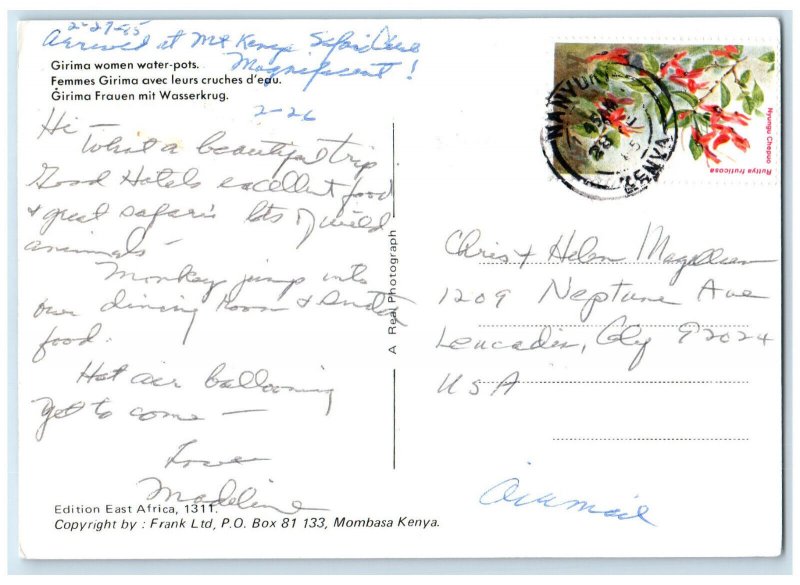 2-27-85
Arrived at Mt Kenya Safari Club
Magnificent!
Girima women water-pots.
Femmes Girima avec leurs cruches d'eau.
Girima Frauen mit Wasserkrug.
2-26
Hi —
What a beautiful trip
Good Hotels excellent food
& great safaris lots of wild
animals —
Monkey jump into
our dining room &
food.
Hot air ballooning
yet to come —
Love
Madeline
Edition East Africa, 1311.
Copyright by : Frank Ltd, P.O. Box 81 133, Mombasa Kenya.
A Real Photograph
NANYUKI
KENYA
Nyungu Chepuo
Ruttya fruticosa
Chris + Helen Magellan
1209 Neptune Ave
Leucadia, Caly 92024
USA
Air mail